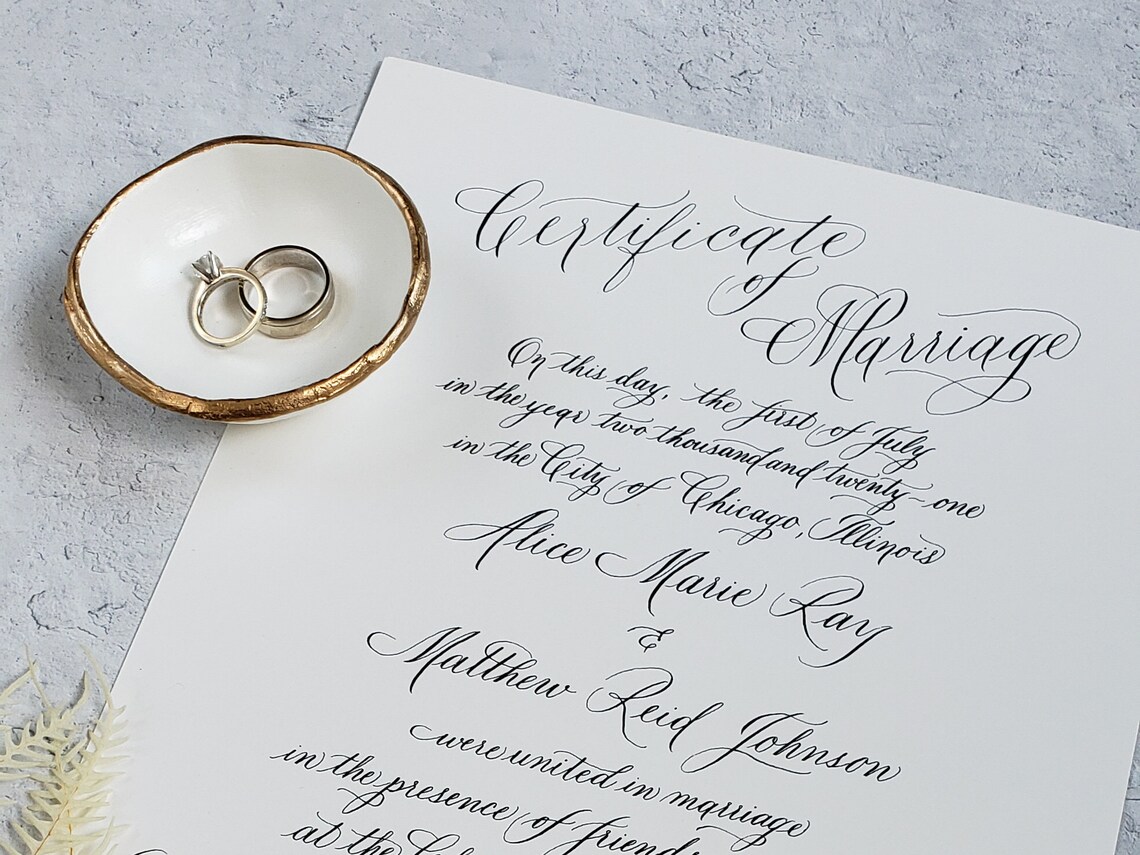 Certificate
of
Marriage
On this day, the first of July
in the year two thousand and twenty-one
in the City of Chicago, Illinois
Alice Marie Ray
&
Matthew Reid Johnson
were united in marriage
in the presence of
at the